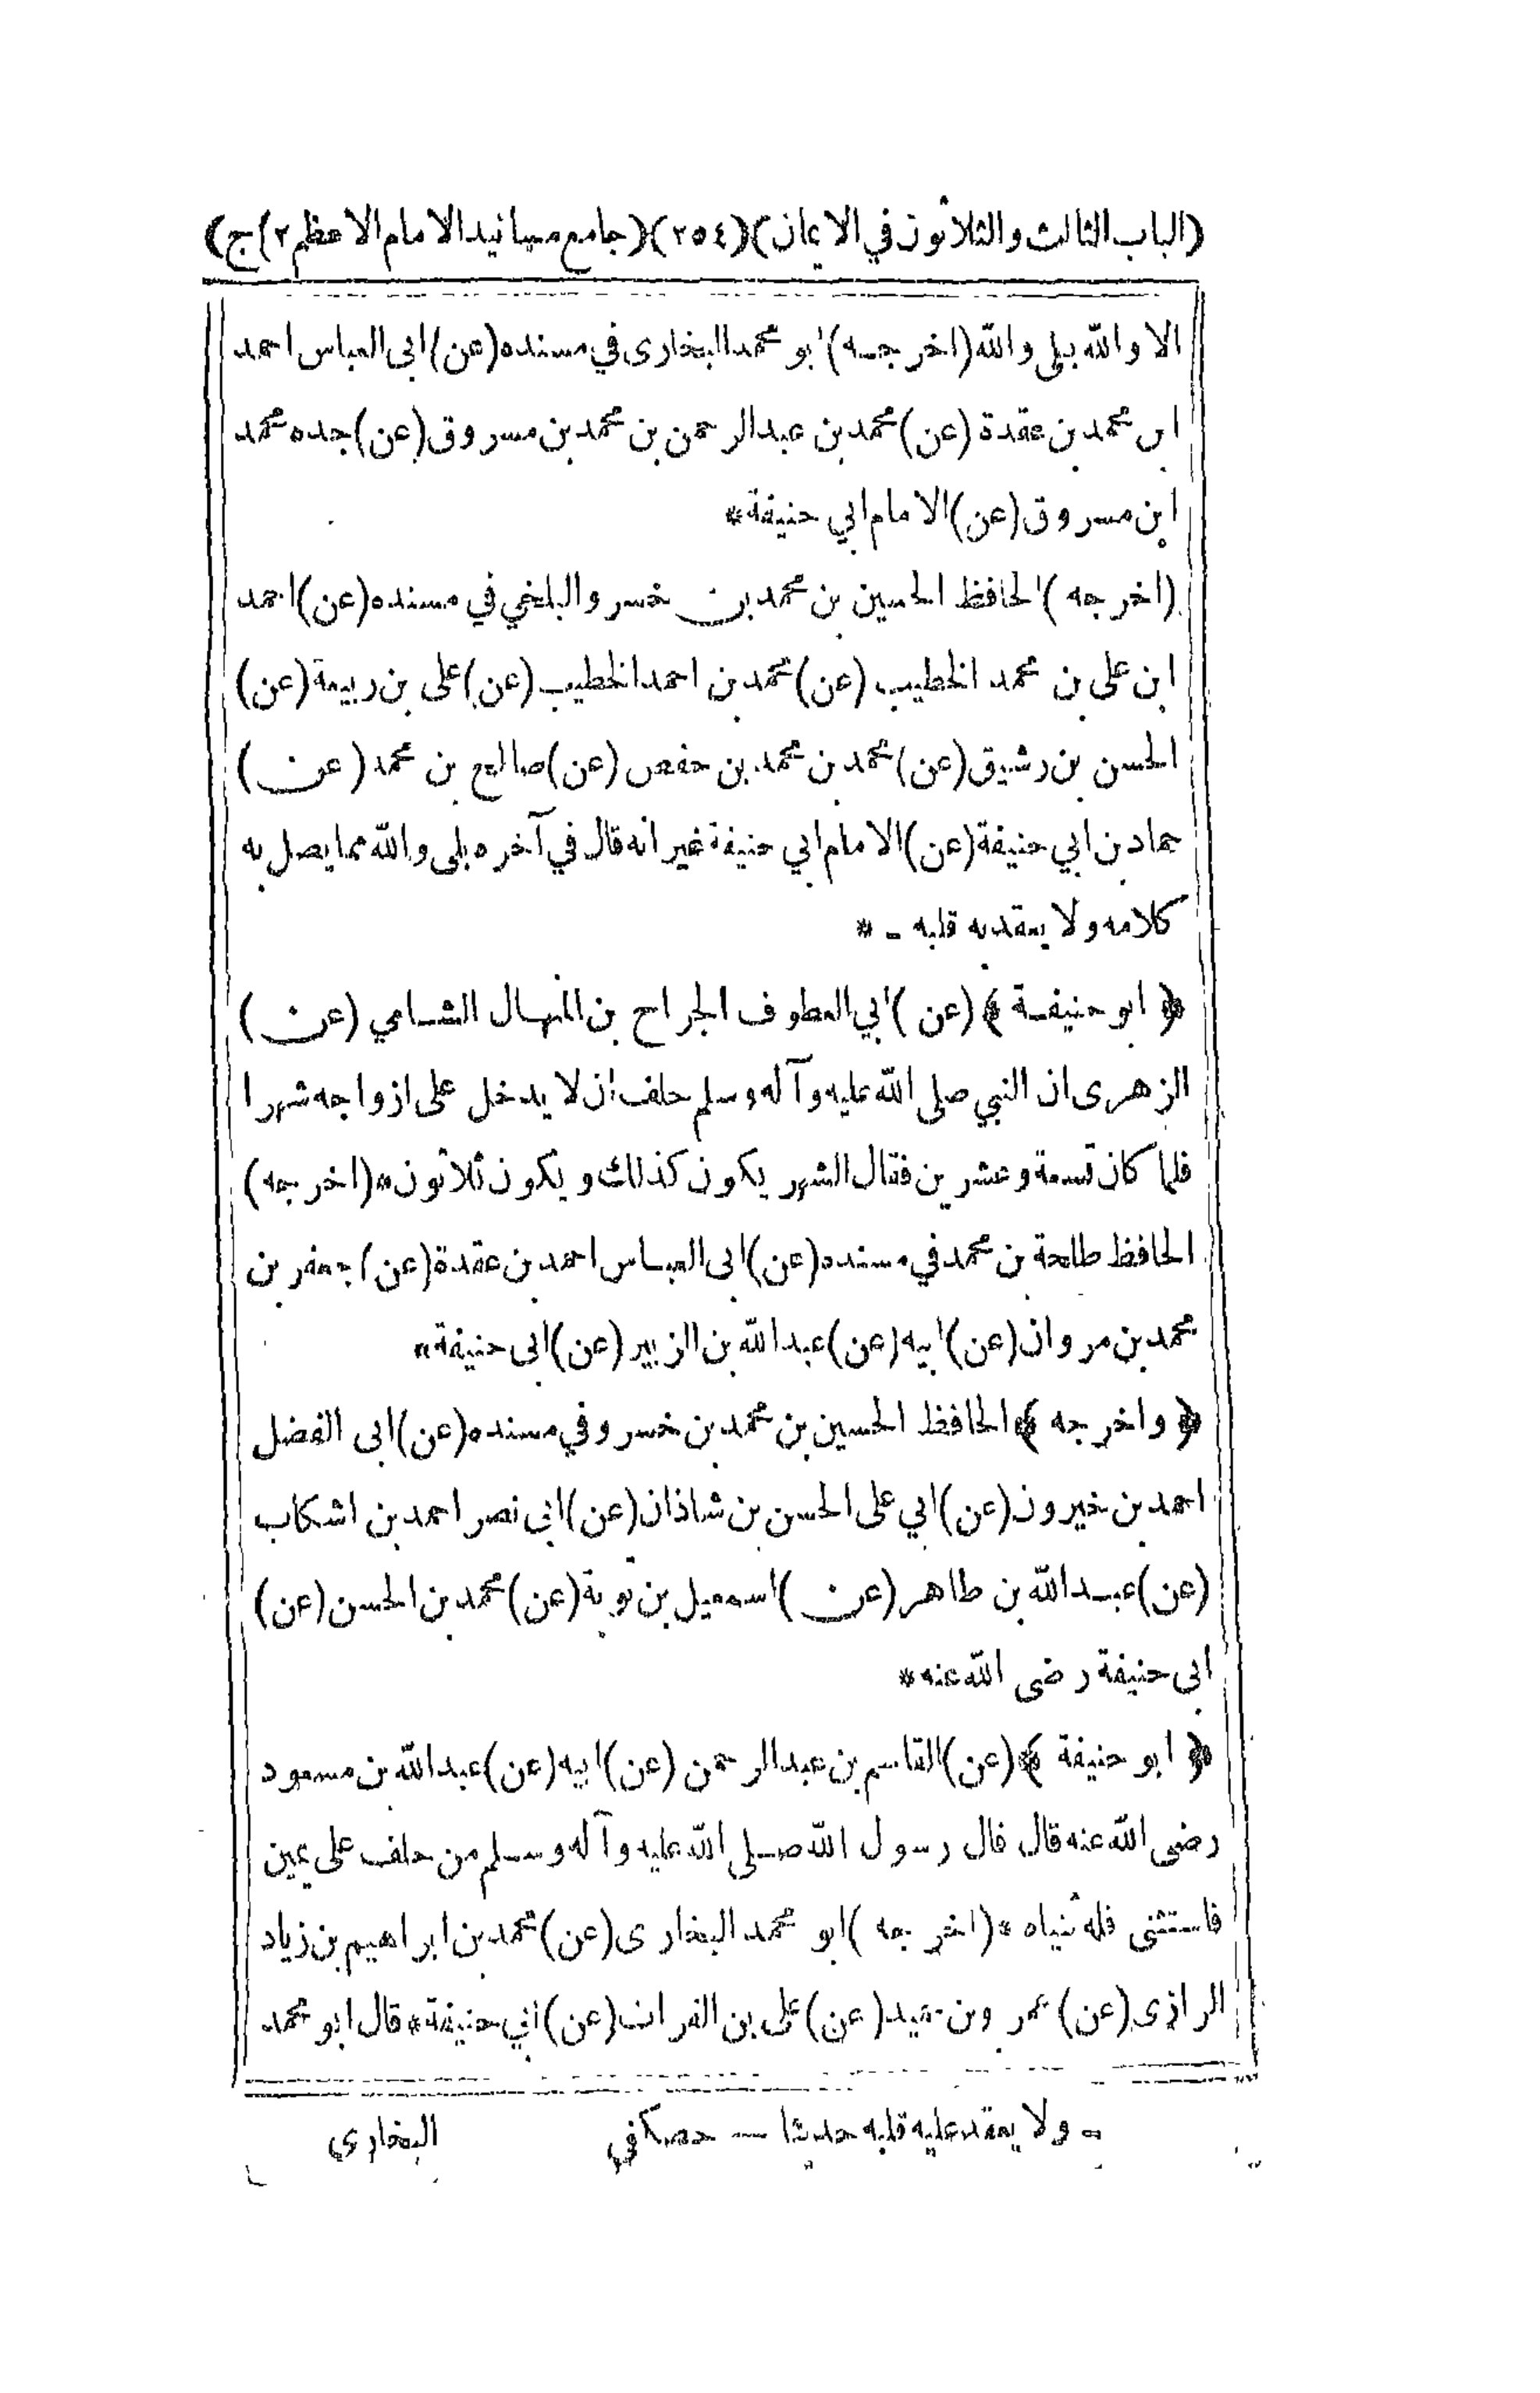 (الباب الثالث والثلاثون في الايمان) (٢٥٤) (جامع مسانيد الامام الاعظم ٢) ج)
الا والله بلى والله (اخرجه) ابو محمد البخارى في مسنده (عن) ابى العباس احمد
ابن محمد بن عقدة (عن) محمد بن عبد الرحمن بن محمد بن مسروق (عن) جده محمد
ابن مسروق (عن) الامام ابي حنيفة *
(اخرجه) الحافظ الحسين بن محمد بن خسرو البلخي في مسنده (عن) احمد
ابن على بن محمد الخطيب (عن) محمد بن احمد الخطيب (عن) على بن ربيعة (عن)
الحسن بن رشيق (عن) محمد بن محمد بن حفص (عن) صالح بن محمد (عن)
حماد بن ابي حنيفة (عن) الامام ابي حنيفة غير انه قال في آخره بلى والله مما يصل به
كلامه ولا يعقد به قلبه - *
﴿ ابو حنيفة ﴾ (عن) ابي العطوف الجراح بن المنهال الشامي (عن)
الزهرى ان النبي صلى الله عليه وآله وسلم حلف ان لا يدخل على ازواجه شهرا
فلما كان تسعة وعشرين فقال الشهر يكون كذلك ويكون ثلاثون * (اخرجه)
الحافظ طلحة بن محمد في مسنده (عن) ابى العباس احمد بن عقدة (عن) جعفر بن
محمد بن مروان (عن) ابيه (عن) عبد الله بن الزبير (عن) ابى حنيفة *
﴿ واخرجه ﴾ الحافظ الحسين بن محمد بن خسرو في مسنده (عن) ابى الفضل
احمد بن خيرون (عن) ابي على الحسن بن شاذان (عن) ابى نصر احمد بن اشكاب
(عن) عبد الله بن طاهر (عن) اسمعيل بن توبة (عن) محمد بن الحسن (عن)
ابى حنيفة رضى الله عنه *
﴿ ابو حنيفة ﴾ (عن) القاسم بن عبد الرحمن (عن) ابيه (عن) عبد الله بن مسعود
رضى الله عنه قال قال رسول الله صلى الله عليه وآله وسلم من حلف على يمين
فاستثنى فله ثنياه * (اخرجه) ابو محمد البخارى (عن) محمد بن ابراهيم بن زياد
الرازى (عن) عمرو بن حميد (عن) على بن الفرات (عن) ابي حنيفة * قال ابو محمد
- ولا يعقد عليه قلبه حديثا — حصكفي
البخارى